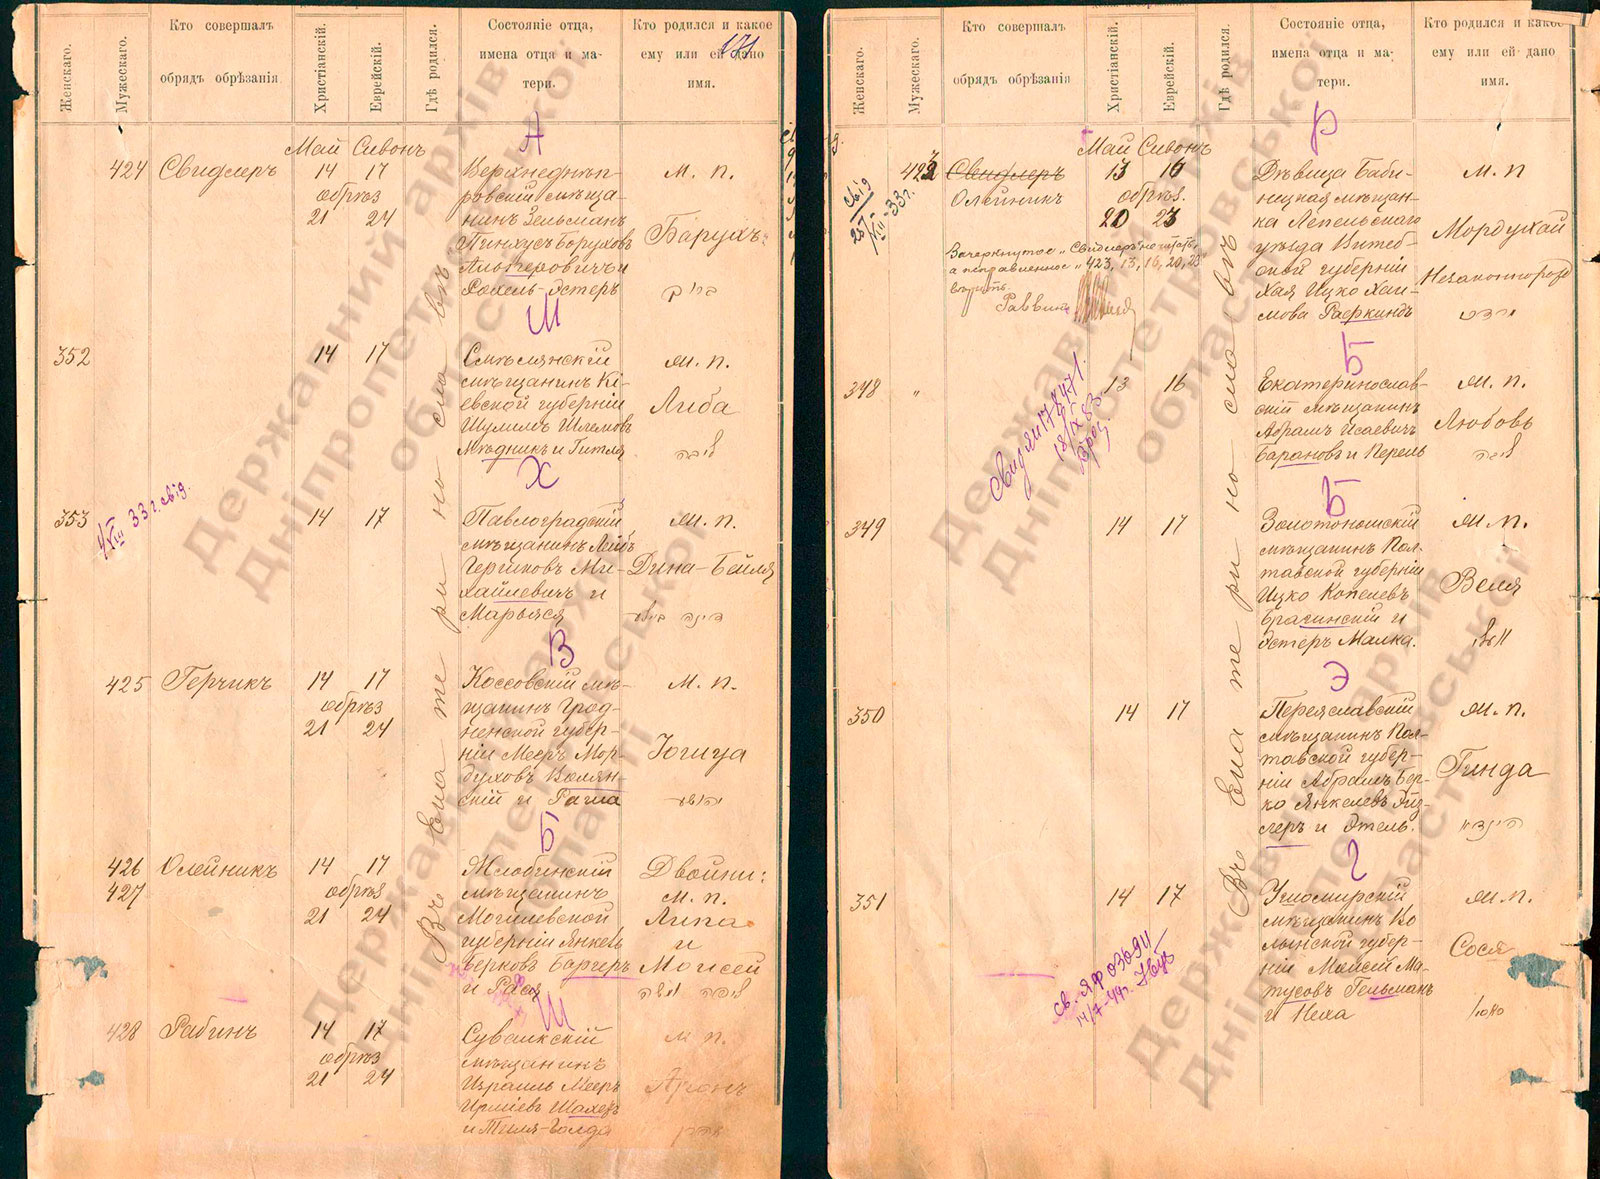 Женскаго.
Мужескаго.
Кто совершалъ
обрядъ обрѣзанія
Христіанскій.
Еврейскій.
Гдѣ родился.
Состояніе отца,
имена отца и ма-
тери.
Кто родился и какое
ему или ей дано
имя.
171
Май Сивонъ
А
424 Свидлеръ 14 17
обрѣз
21 24
Верхнеднѣп-
ровскій мѣща-
нинъ Зельманъ
Пинхусъ Боруховъ
Альтеровичъ и
Рохель-Эстеръ
М. п.
Барухъ:
ברוך
Ш
352 14 17
Смѣлянскій
мѣщанинъ Кі-
евской губерніи
Шулимъ Шлемовъ
Мѣдникъ и Гитля
М. п.
Либа
ליבה
Х
353 14 17
XII 33 г. свід.
Павлоградскій
мѣщанинъ Лейбъ
Гершковъ Ми-
хайлевичъ и
Марьяся
М. п.
Дина-Бейля
דינה ביילע
В
425 Герчикъ 14 17
обрѣз
21 24
Коссовскій мѣ-
щанинъ Грод-
ненской губер-
ніи Мееръ Мор-
духовъ Волян-
скій и Раша
М. п.
Б
426 Олейникъ 14 17
427 обрѣз
21 24
Жлобинскій
мѣщанинъ
Могилевской
губерніи Янкель
Берковъ Баргеръ
и Рася
Двойни:
М. п.
Липа
и
Моисей
ליפה משה
Ш
428 Рабинъ 14 17
обрѣз
21 24
Сувалкскій
мѣщанинъ
Израиль Мееръ
и Тиля-Голда
М п.
Аронъ
אהרן
Въ Екатеринославѣ
Женскаго.
Мужескаго.
Кто совершалъ
обрядъ обрѣзанія
Христіанскій.
Еврейскій.
Гдѣ родился.
Состояніе отца,
имена отца и ма-
тери.
Кто родился и какое
ему или ей дано
имя.
Май Сивонъ
Р
423 Свидлеръ 13 16
Олейникъ обрѣз.
20 23
Зачеркнутое „Свидлеръ" не читать,
а исправленное „423, 13, 16, 20, 23
вѣрить.
Раввинъ
свід
XII-33 г.
Дѣвица Баби-
ницкая мѣщан-
ка Лепельскаго
уѣзда Витеб-
ской губерніи
Хая Ицко Хаи-
мова Раскиндъ
М. п
Мордухай
Незаконнорожд
מרדכי
Б
348 „ 13 16
Екатеринослав-
скій мѣщанинъ
Абрамъ Исаевичъ
Барановъ и Перель
М. п.
Любовь
ליבה
Б
349 14 17
Золотоношскій
мѣщанинъ Пол-
тавской губерніи
Ицко Копелевъ
Брагинскій и
Эстеръ Малка.
М. п.
Веля
Э
350 14 17
Переяславскій
мѣщанинъ Пол-
тавской губер-
ніи Абрамъ Бер-
ко Янкелевъ Эйз-
леръ и Этель.
М. п.
Гинда
Г
351 14 17
св. ЯФ 036911
14/7-44г.
Ушомирскій
мѣщанинъ Во
лынской губер-
ніи Мойсій Ма-
тусовъ Гельманъ
и Неха
М. п.
Сося
Въ Екатеринославѣ
Державний архів
Дніпропетровської
області